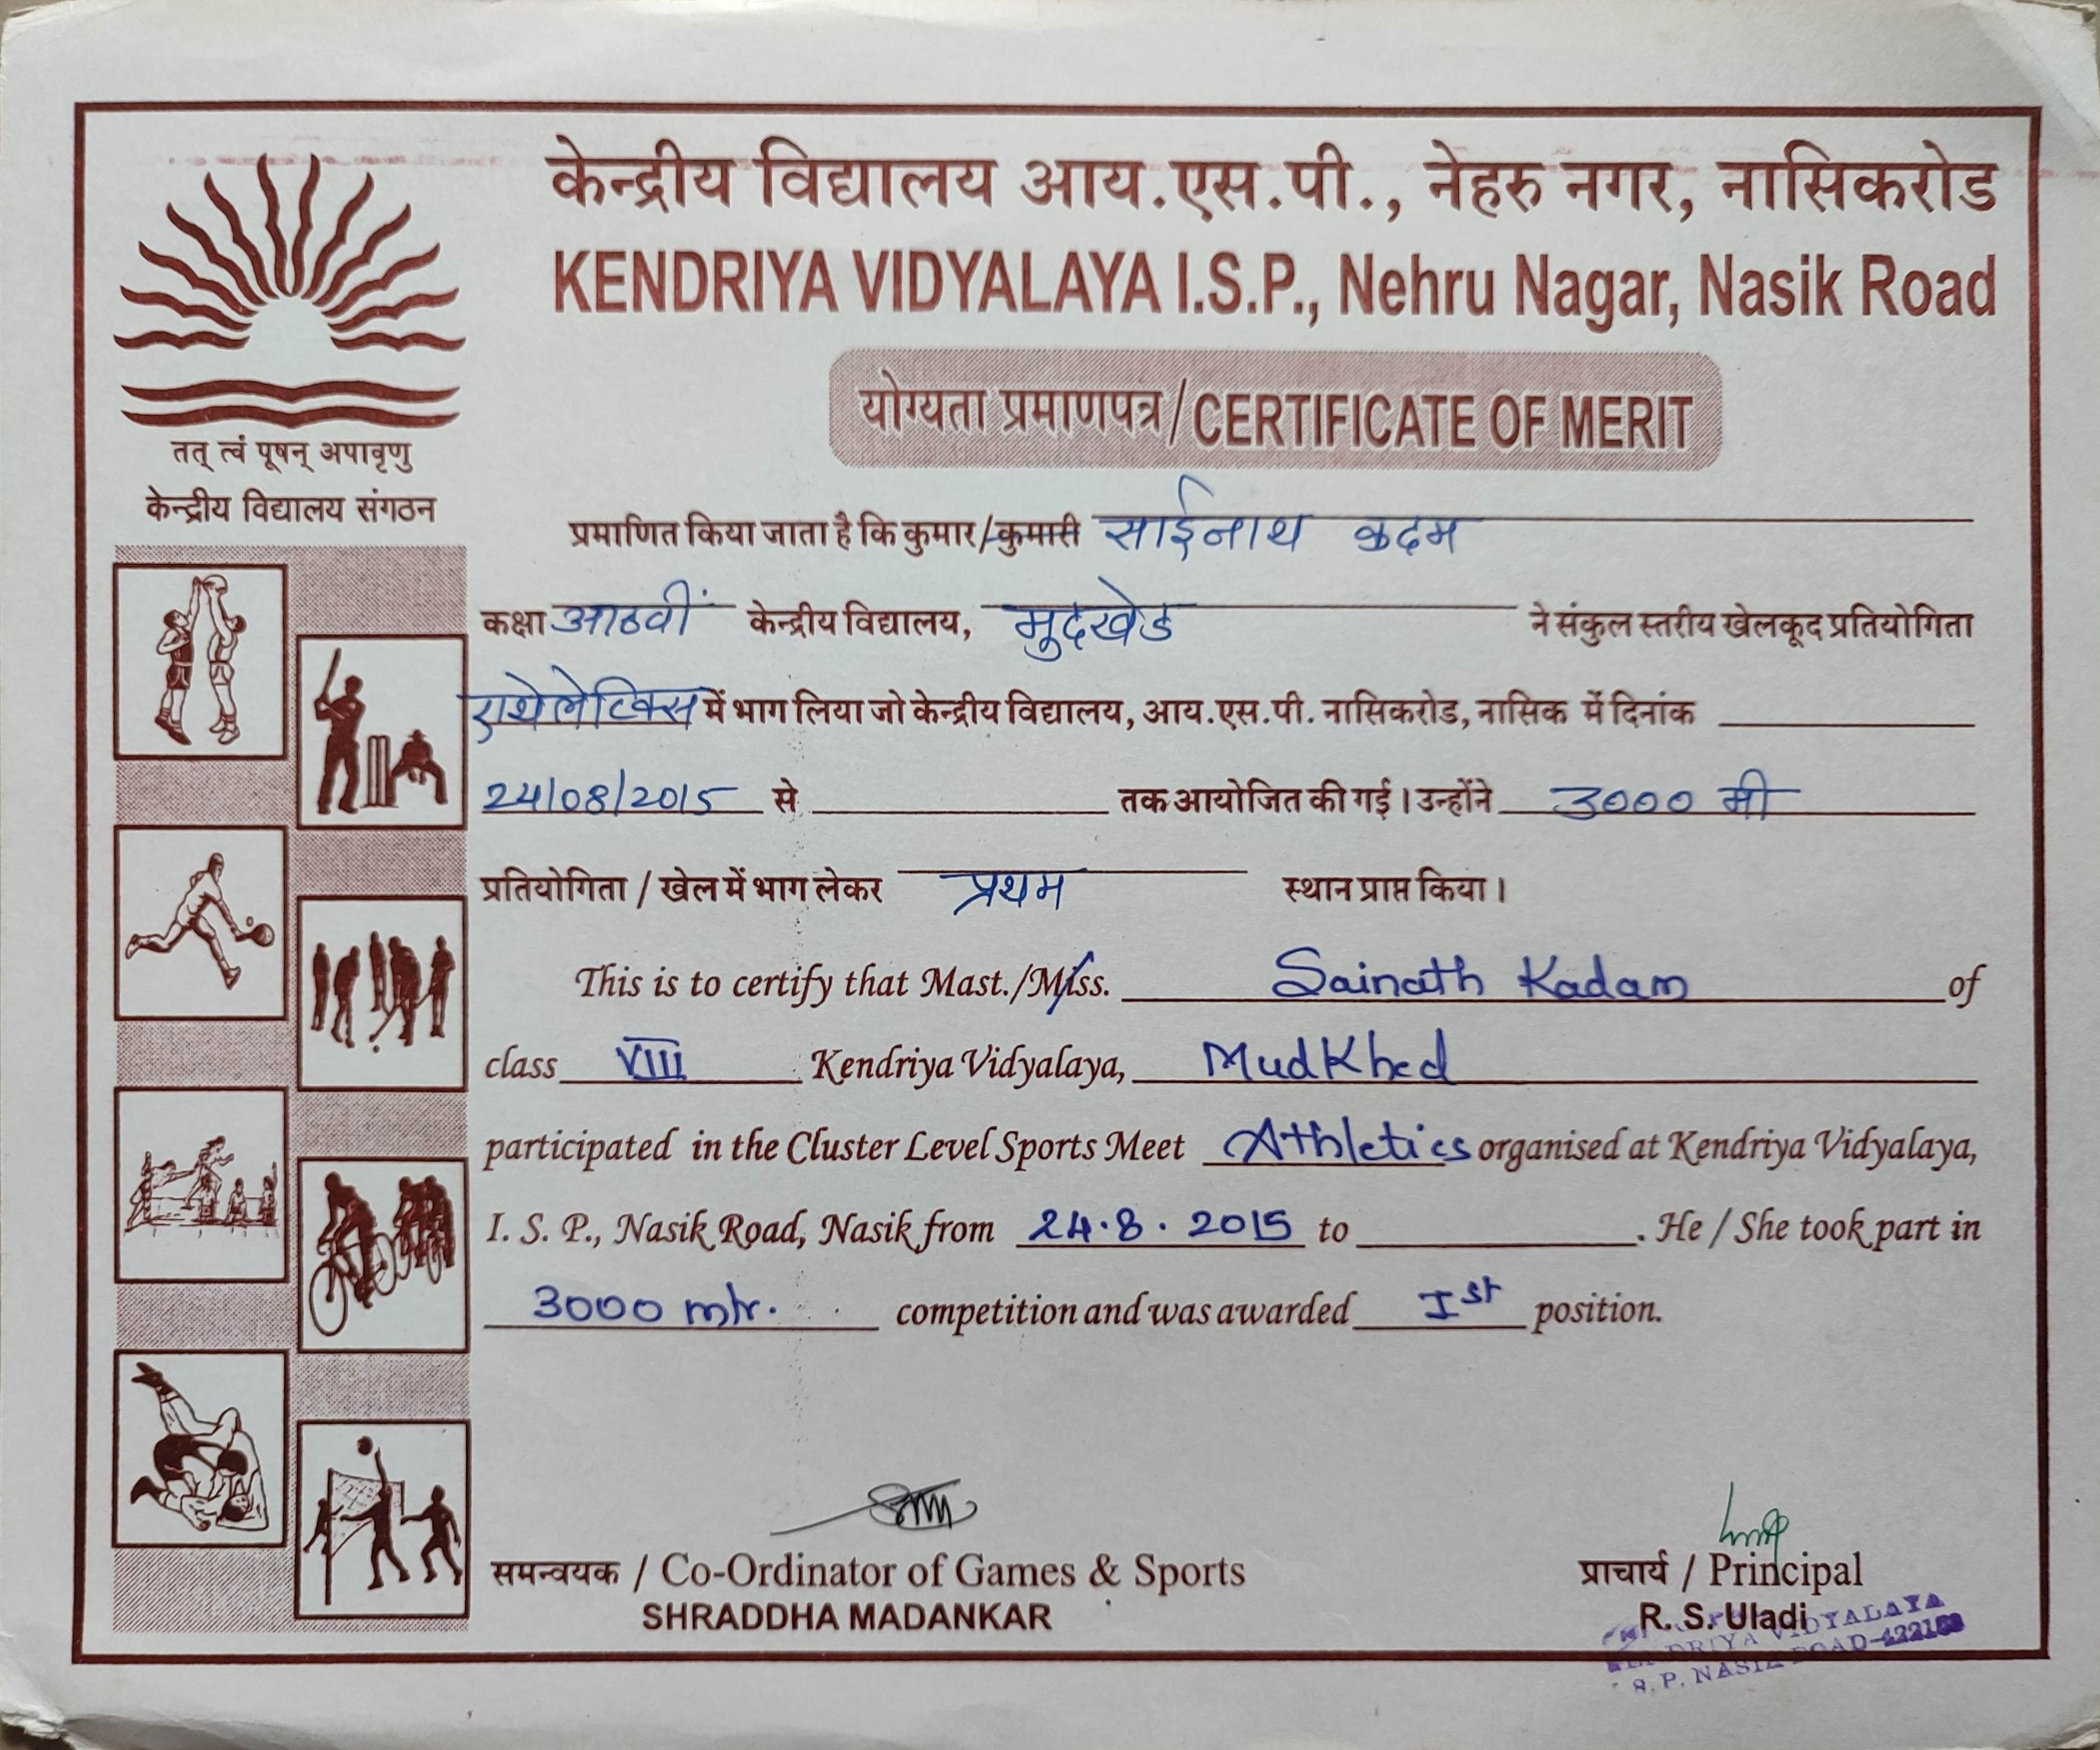 केन्द्रीय विद्यालय आय.एस.पी., नेहरु नगर, नासिकरोड
KENDRIYA VIDYALAYA I.S.P., Nehru Nagar, Nasik Road
योग्यता प्रमाणपत्र/CERTIFICATE OF MERIT
तत् त्वं पूषन् अपावृणु
केन्द्रीय विद्यालय संगठन
प्रमाणित किया जाता है कि कुमार/कुमारी साईनाथ कदम
कक्षा आठवीं केन्द्रीय विद्यालय, मुदखेड ने संकुल स्तरीय खेलकूद प्रतियोगिता
एथेलेटिक्स में भाग लिया जो केन्द्रीय विद्यालय, आय.एस.पी. नासिकरोड, नासिक में दिनांक
24/08/2015 से तक आयोजित की गई। उन्होंने 3000 मी
प्रतियोगिता / खेल में भाग लेकर प्रथम स्थान प्राप्त किया।
This is to certify that Mast./Miss. Sainath Kadam of
class VIII Kendriya Vidyalaya, Mudkhed
participated in the Cluster Level Sports Meet Athletics organised at Kendriya Vidyalaya,
I. S. P., Nasik Road, Nasik from 24.8.2015 to . He / She took part in
3000 mtr. competition and was awarded Ist position.
समन्वयक / Co-Ordinator of Games & Sports
SHRADDHA MADANKAR
प्राचार्य / Principal
R. S. Uladi
VIDYALAYA
NASIK ROAD-422